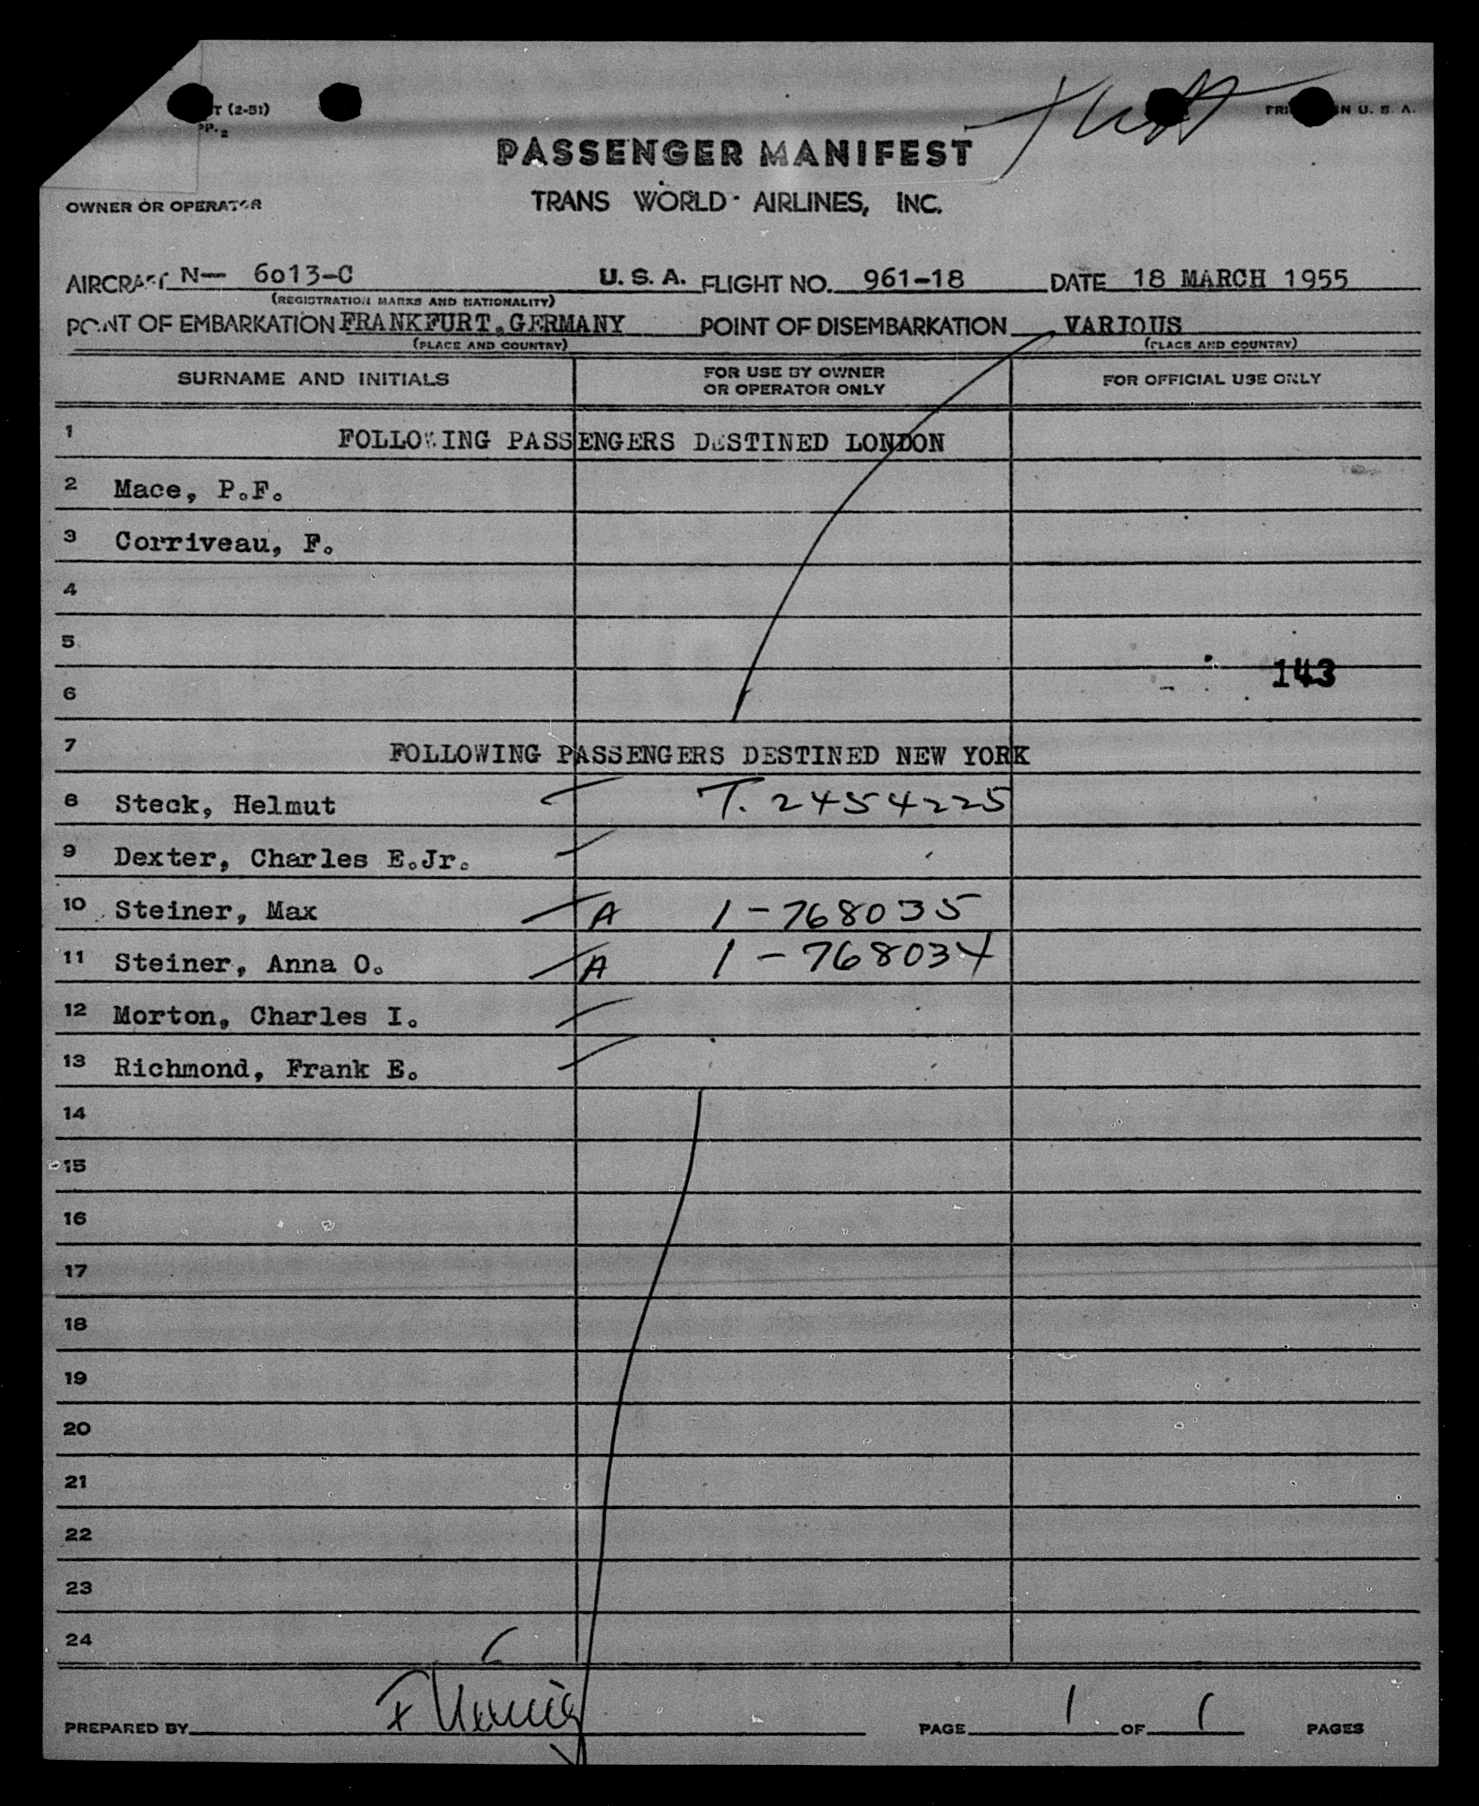 T (2-51)
PRI N U. S. A.
PP. 2
PASSENGER MANIFEST
OWNER OR OPERATOR TRANS WORLD AIRLINES, INC.
AIRCRAFT N— 6013-C U. S. A. FLIGHT NO. 961-18 DATE 18 MARCH 1955
(REGISTRATION MARKS AND NATIONALITY)
POINT OF EMBARKATION FRANKFURT.GERMANY POINT OF DISEMBARKATION VARIOUS
(PLACE AND COUNTRY) (PLACE AND COUNTRY)
SURNAME AND INITIALS FOR USE BY OWNER OR OPERATOR ONLY FOR OFFICIAL USE ONLY
1 FOLLOWING PASSENGERS DESTINED LONDON
2 Mace, P.F.
3 Corriveau, F.
4
5
143
6
7 FOLLOWING PASSENGERS DESTINED NEW YORK
8 Steck, Helmut T. 2454225
9 Dexter, Charles E.Jr.
10 Steiner, Max A 1-768035
11 Steiner, Anna O. A 1-768034
12 Morton, Charles I.
13 Richmond, Frank E.
14
15
16
17
18
19
20
21
22
23
24
PREPARED BY PAGE 1 OF 1 PAGES